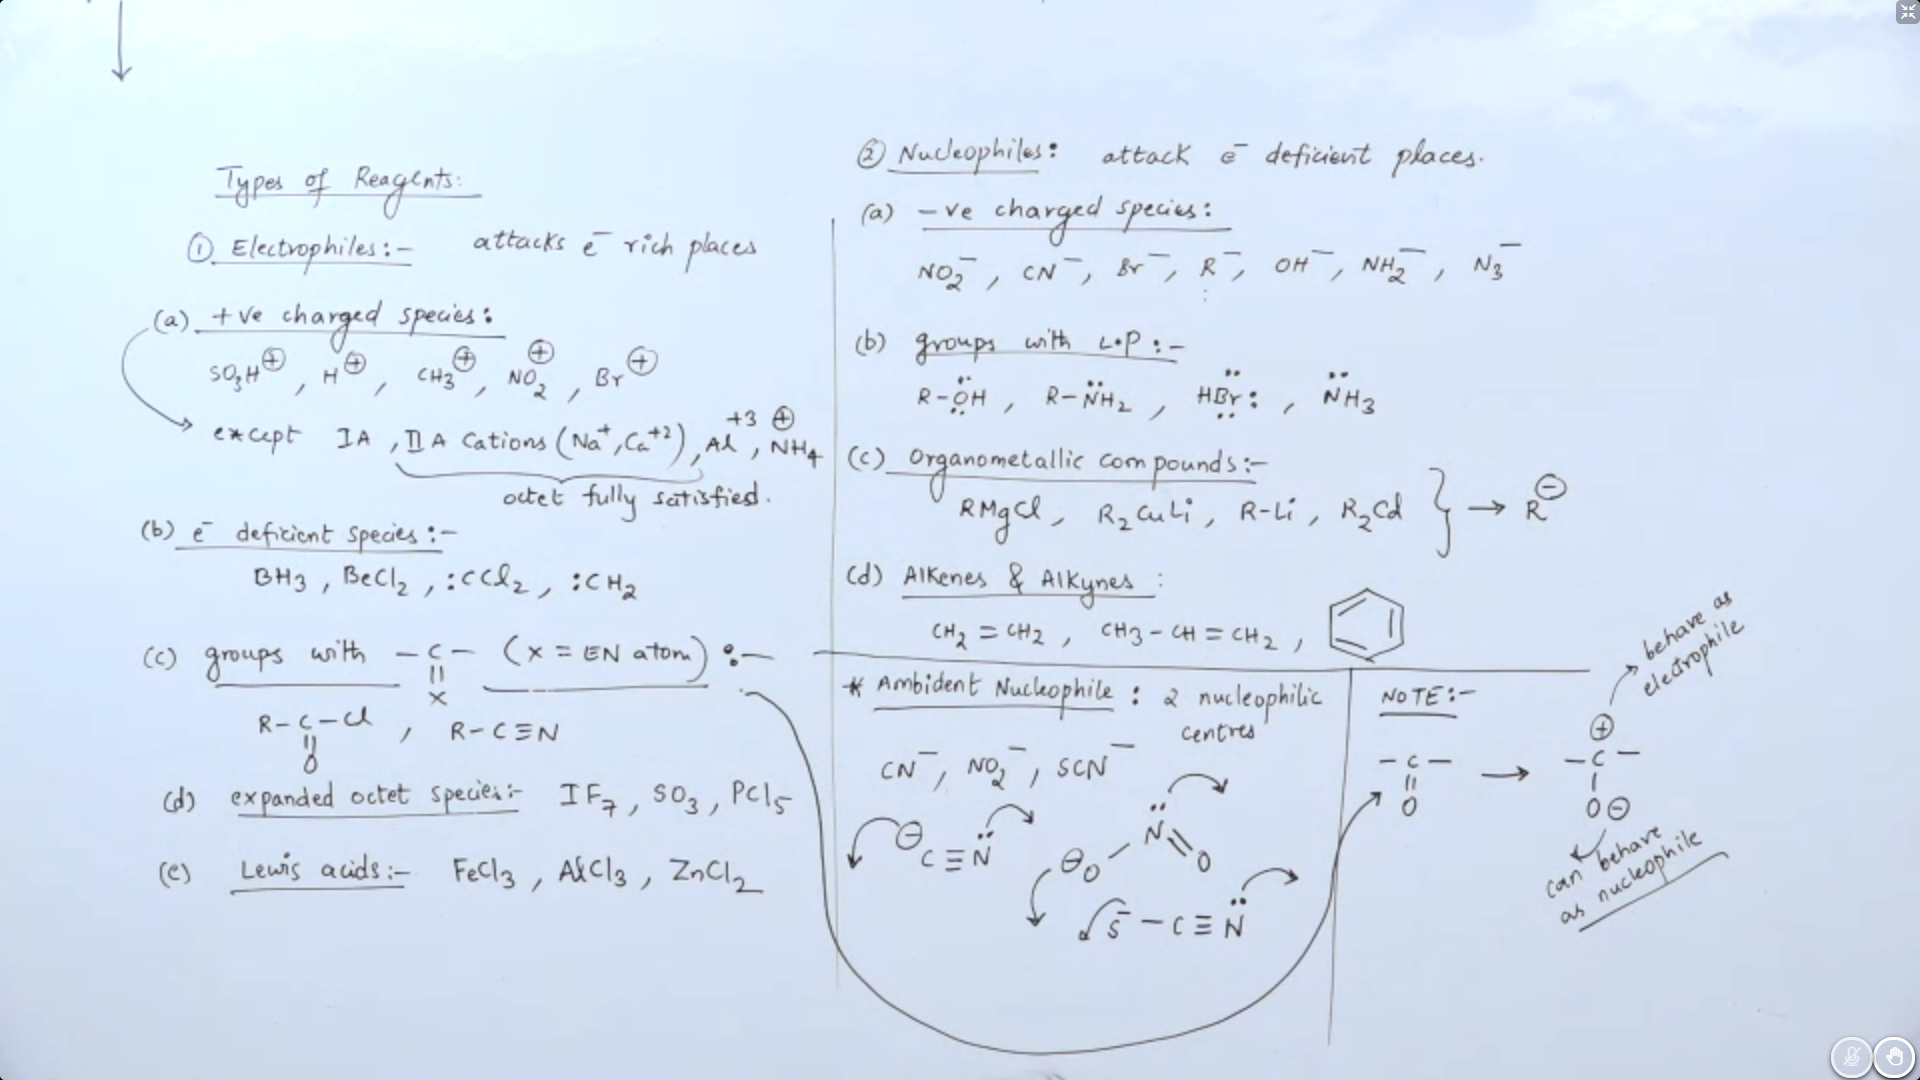 Types of Reagents:
① Electrophiles:- attacks e⁻ rich places
(a) +ve charged species:
SO₃H⊕, H⊕, CH₃⊕, NO₂⊕, Br⊕
except IA, IIA Cations (Na⁺, Ca⁺²), Al⁺³, NH₄⊕
octet fully satisfied.
(b) e⁻ deficient species:-
BH₃, BeCl₂, :CCl₂, :CH₂
(c) groups with -C- (x = EN atom):-
||
x
R-C-Cl, R-C≡N
||
O
(d) expanded octet species:- IF₇, SO₃, PCl₅
(e) Lewis acids:- FeCl₃, AlCl₃, ZnCl₂
② Nucleophiles: attack e⁻ deficient places.
(a) -ve charged species:
NO₂⁻, CN⁻, Br⁻, R⁻, OH⁻, NH₂⁻, N₃⁻
(b) groups with L.P:-
R-ÖH, R-N̈H₂, HBr:, N̈H₃
(c) Organometallic compounds:-
RMgCl, R₂CuLi, R-Li, R₂Cd } → R⊖
(d) Alkenes & Alkynes:
CH₂=CH₂, CH₃-CH=CH₂,
* Ambident Nucleophile: 2 nucleophilic
centres
CN⁻, NO₂⁻, SCN⁻
⊖C≡N̈
⊖O-N̈=O
S⁻-C≡N̈
NOTE:-
-C- → -C-
|| ⊕
O O⊖
behave as
electrophile
can behave
as nucleophile